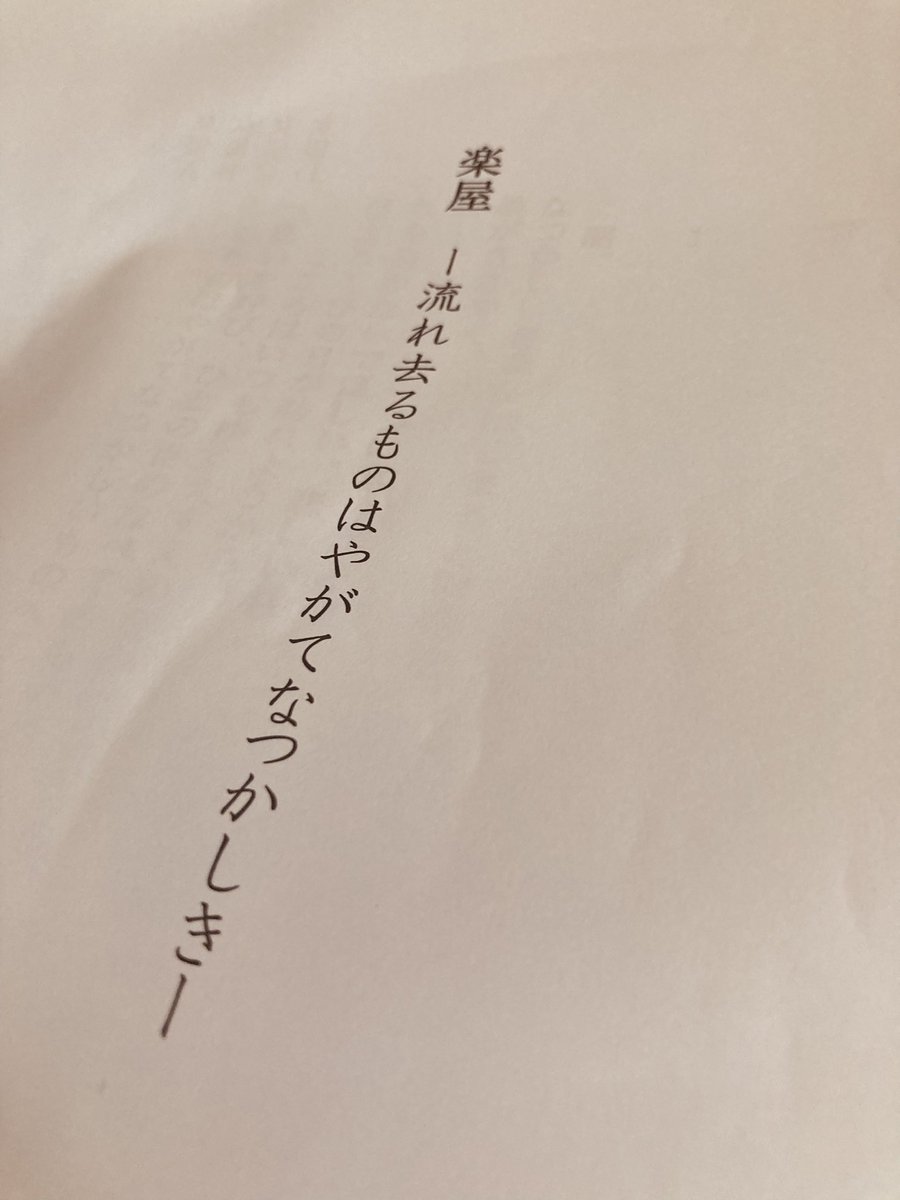 楽屋　ー流れ去るものはやがてなつかしきー